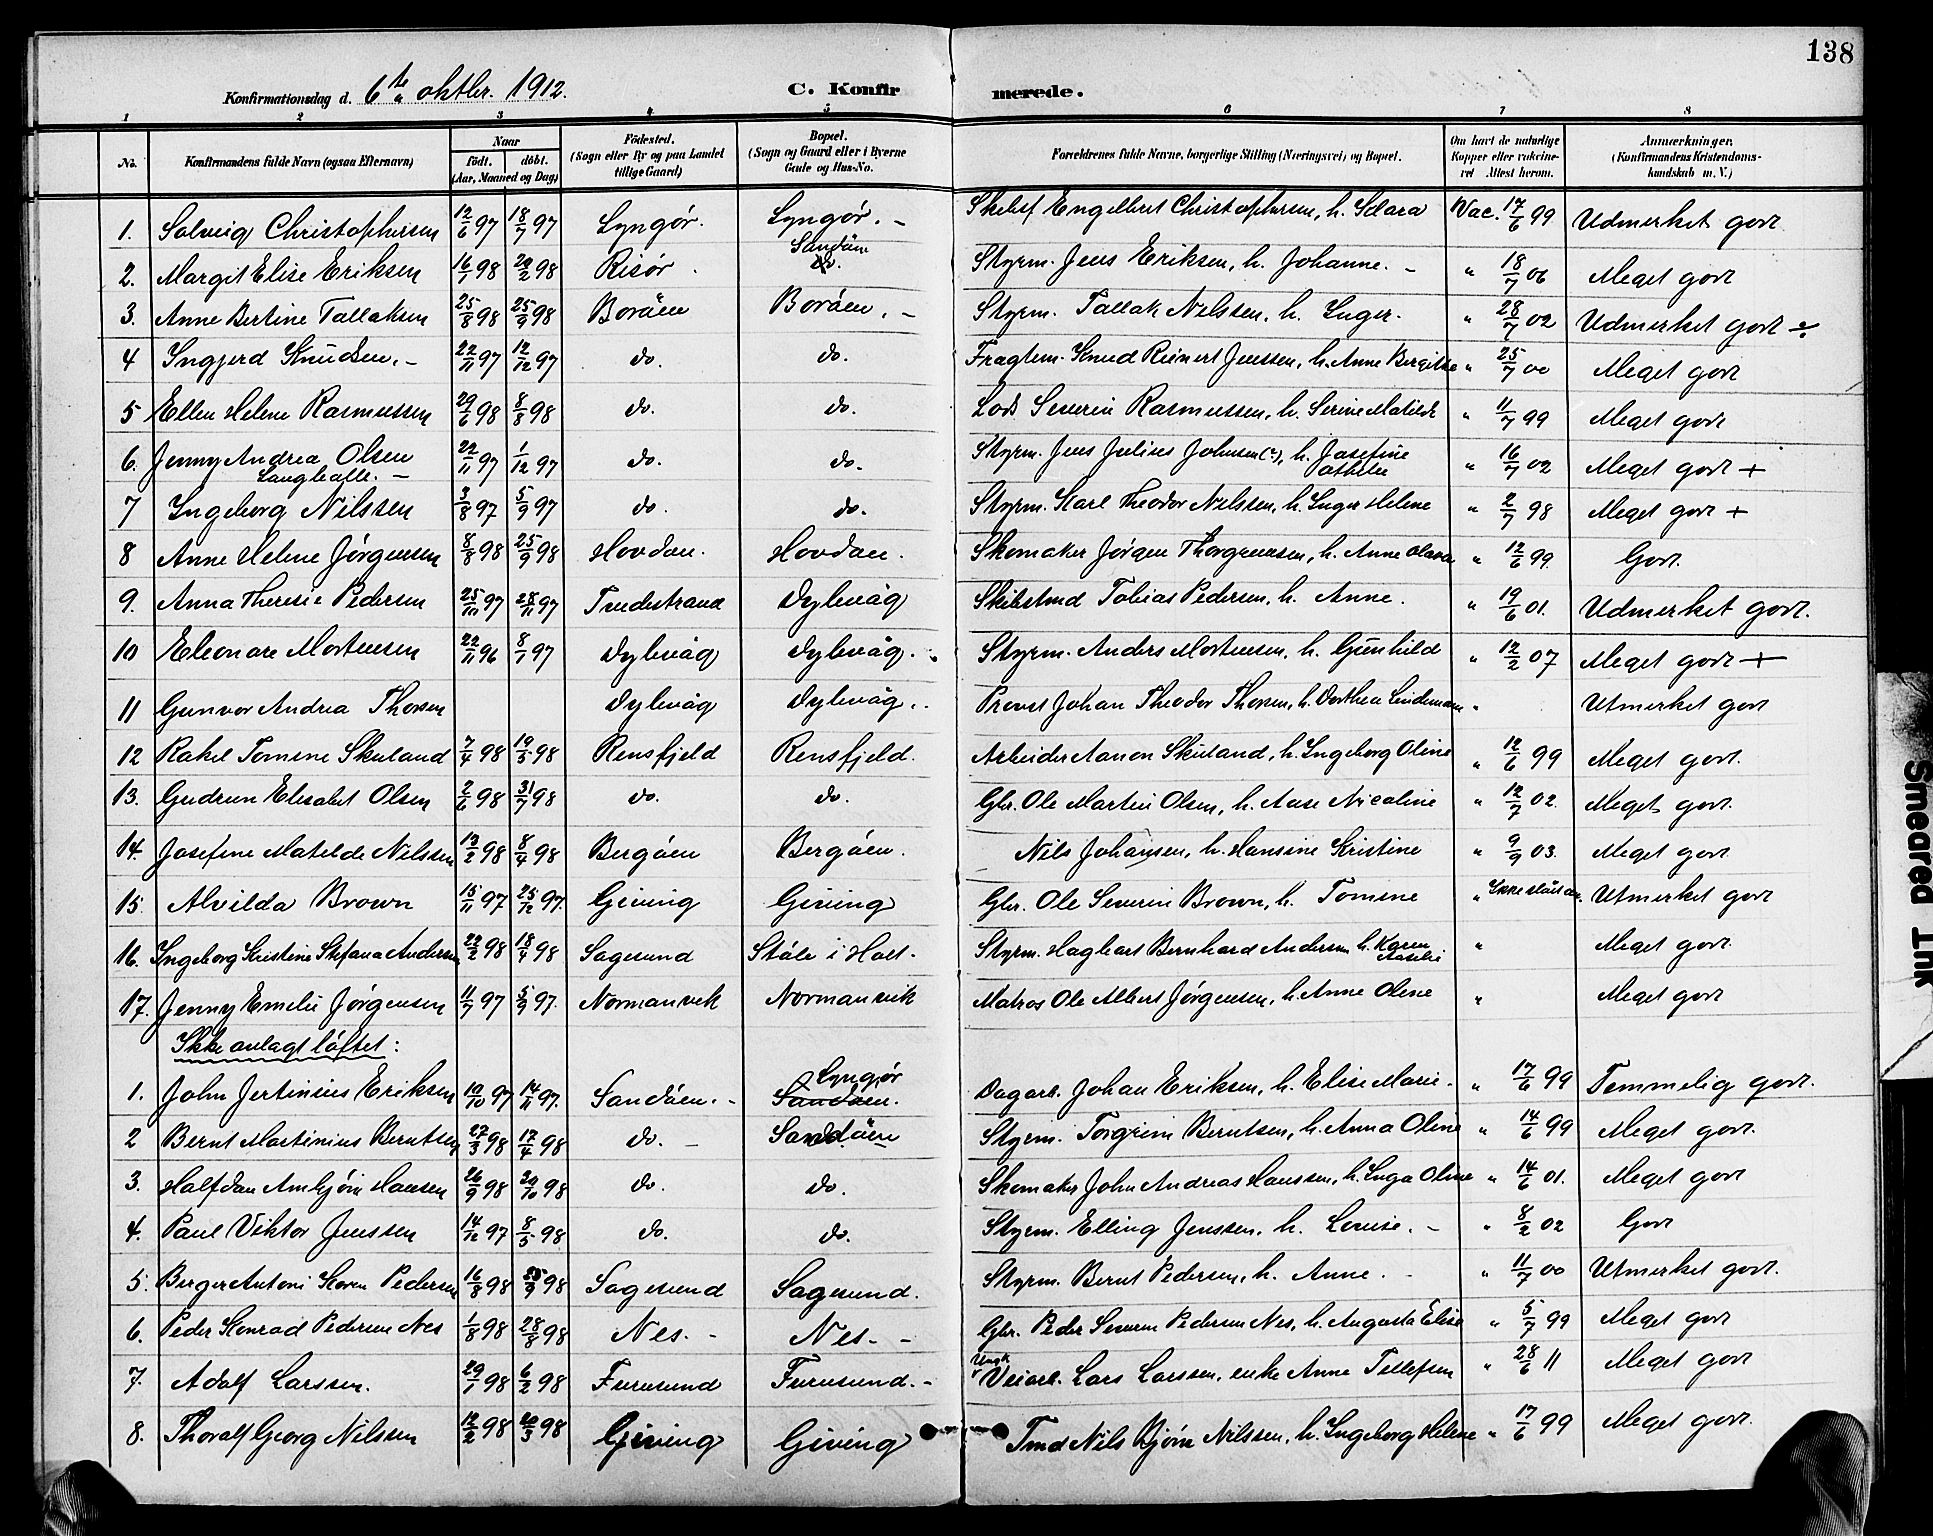 138
Konfirmationsdag d. 6te oktbr. 1912. C. Konfirmerede.
1 2 3 4 5 6 7 8
No. Konfirmandens fulde Navn (ogsaa Efternavn) Naar födt. döbt. (Aar, Maaned og Dag) Födested. (Sogn eller By og paa Landet tillige Gaard) Bopæl. (Sogn og Gaard eller i Byerne Gade og Hus-No. Forældrenes fulde Navne, borgerlige Stilling (Næringsvei) og Bopæl. Om havt de naturlige Kopper eller vakcineret Attest herom. Anmærkninger. (Konfirmandens Kristendomskundskab m. V.)
1. Solveig Christophersen 12/6 97 18/7 97 Lyngör. Lyngör. - Engelbret Christophersen, h. Klara Vac. 17/6 99 Udmerket godt
2. Margit Elise Eriksen 16/1 98 20/2 98 Risör. Sandöen Styrm. Jens Eriksen, h. Johanne. - " 18/7 06 Meget godt
3. Anne Bertine Tallaksen 25/8 98 25/9 98 Boröen Boröen. - Styrm. Tallak Nilssen, h. Inger. " 28/7 02 Udmerket godt ÷
4 Ingjerd Knudsen. - 22/11 97 12/12 97 do. do. Fragtem. Knud Reinert Jenssen, h. Anne Bergitte " 25/7 00 Meget godt
5 Ellen Helene Rasmussen 29/6 98 8/8 98 do. do. Lods Severin Rasmussen, h. Serine Matilde " 11/7 99 Meget godt
6. Jenny Andrea Olsen Langballe. - 22/11 97 1/12 97 do. do. Styrm. Jens Julius Johnsen (?), h. Josefine " 16/7 02 Meget godt +
7 Ingeborg Nilssen 3/8 97 5/9 97 do. do. Styrm. Karl Theodor Nilssen, h. Inger Helene " 2/7 98 Meget godt +
8 Anne Helene Jörgensen 8/8 98 25/9 98 Hovdan. Hovdan. Skomaker Jörgen Thorgrensen, h. Anne Olava " 12/6 99. Godt.
9. Anna Theresie Pedersen 25/10 97 28/11 97 Tvedestrand Dybvåg Skibstmd Tobias Pedersen, h. Anne. " 19/6 01. Udmerket godt.
10 Eleonare Mortensen 22/11 96 8/1 97 Dybvåg Dybvåg. Styrm. Anders Mortensen, h. Gunhild " 12/2 07 Meget godt +
11 Gunvor Andrea Thorsen Dybvåg Dybvåg. Provst Johan Theodor Thorsen, h. Dorthea Lindemann " Utmerket godt
12 Rakel Tomine Skuland 7/4 98 19/5 98 Rensfjeld Rensfjeld. Arbeider Aanon Skuland, h. Ingeborg Oline " 12/6 99 Meget godt.
13. Gudrun Elisabet Olsen 2/6 98 31/7 98 do. do. Gbr. Ole Martin Olsen, h. Aase Nicoline " 12/7 02. Meget godt.
14. Josefine Matilde Nilssen 12/2 98 8/4 98 Bergöen Bergöen. Nils Johansen, h. Hansine Kristine " 9/9 03. Meget godt
15. Alvilda Brown 15/11 97 25/12 97. Giving Giving Gbr. Ole Severin Brown, h. Tomine " Utmerket godt
16. Ingeborg Kristine Stefana Andersen 22/2 98 18/4 98 Sagesund Støle i Holt. Styrm. Hagbart Bernhard Andersen h. Karen " Meget godt.
17. Jenny Emelie Jörgensen 11/7 97 5/9 97. Normanvik Normanvik Matros Ole Albert Jörgensen, h. Anne Olene " Meget godt
Ikke avlagt löftet:
1. John Jertinius Eriksen 10/10 97 14/11 97. Sandöen. - Lyngör Sandöen. Dagarb. Johan Eriksen, h. Elise Marie. " 17/6 99 Temmelig godt.
2 Bernt Martinius Berntsen 27/3 98 17/4 98 do. - Sandöen Styrm. Torgrim Berntsen, h. Anna Oline " 14/6 99 Meget godt.
3. Halfdan Arnbjörn Hansen 26/9 98 20/10 98 do. do. Skomaker John Andreas Hanssen, h. Inga Oline " 14/6 01. Meget godt
4. Paul Viktor Jenssen 14/12 97 8/5 98 do. do. Styrm. Elling Jenssen, h. Louise. - " 8/2 02 Godt
5. Berger Antoni Koren Pedersen 16/8 98 25/9 98 Sagesund Sagesund. Styrm. Bernt Pedersen, h. Anne. - " 11/7 00 Utmerket godt.
6. Peder Konrad Pedersen Nes 1/8 98 28/8 98 Nes. - Nes. - Gbr. Peder Severin Pedersen Nes, h. Augusta Elise " 5/7 99 Meget godt
7. Adolf Larssen. 29/1 98 6/2 98 Furusund Furusund. - Veiarb. Lars Larssen, enke Anne Tellefsen " 28/6 11 Meget godt
8. Thoralf Georg Nilssen 12/2 98 20/3 98 Giving Giving Tmd Nils Björn Nilssen, h. Ingeborg Helene " 17/6 99 Meget godt.
Smeared Ink